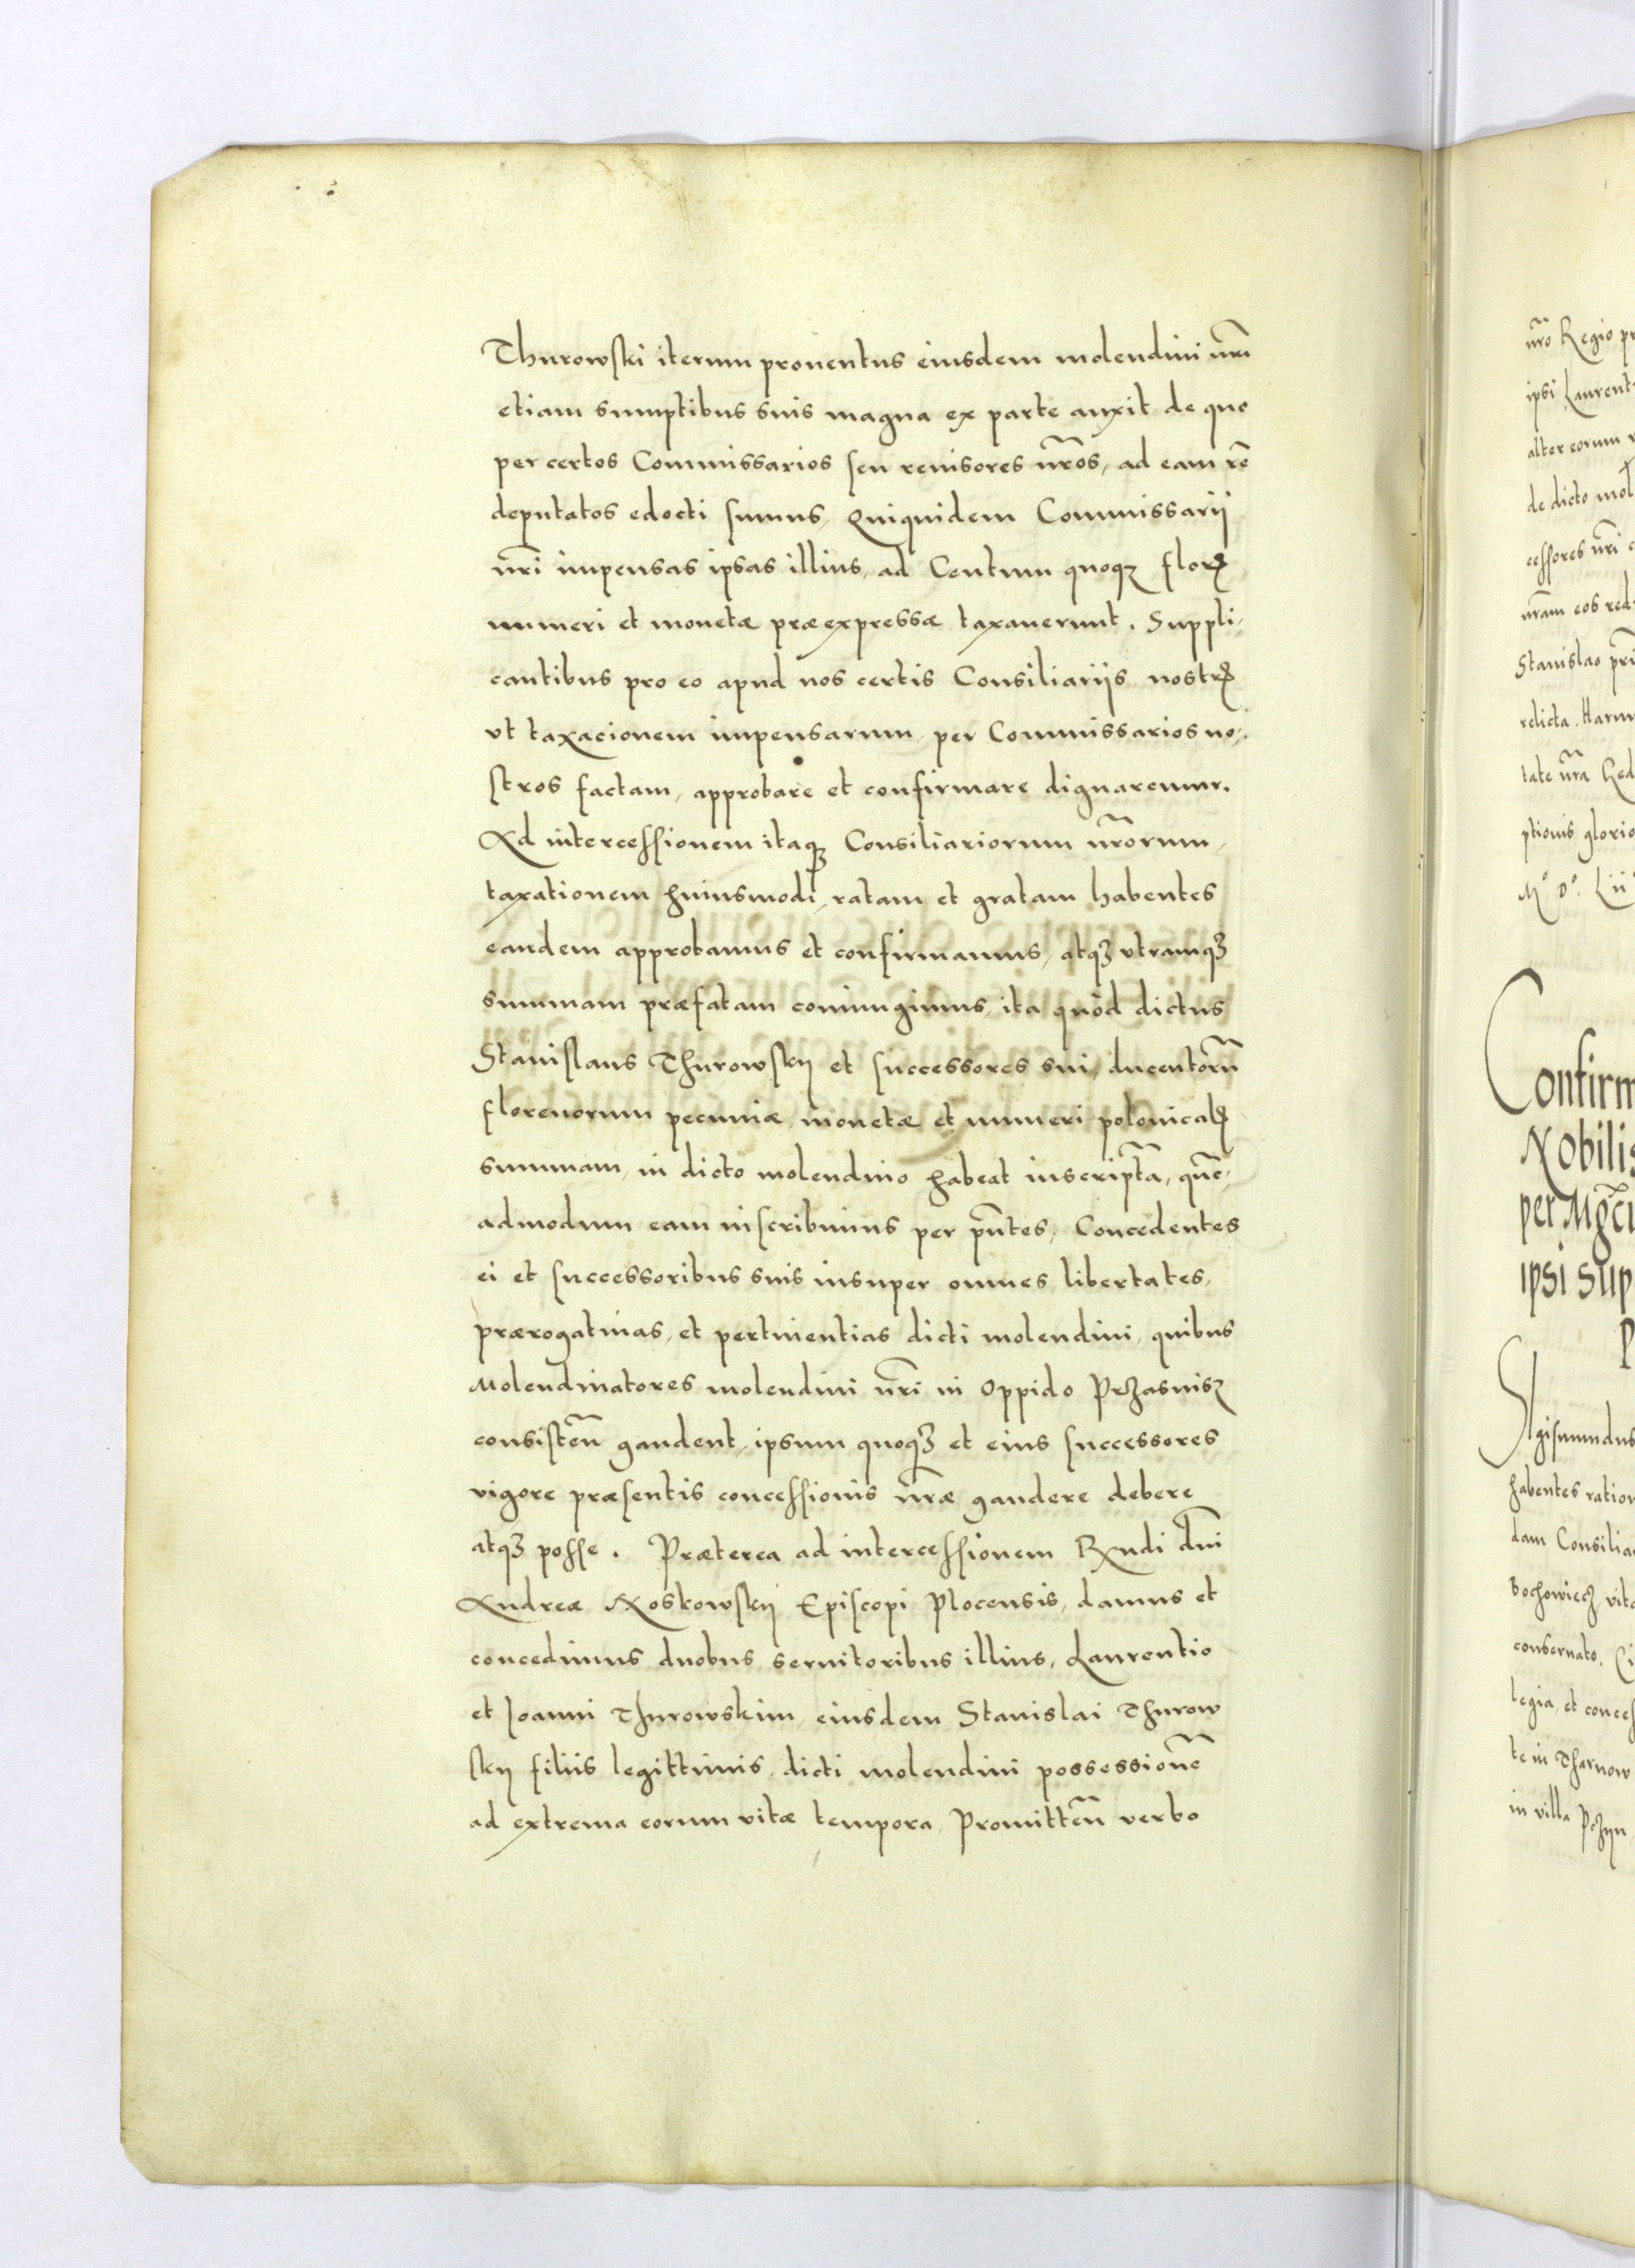 Thurowski iterum prouentus eiusdem molendini nr̃i
etiam sumptibus suis magna ex parte auxit, de quo
per certos Commissarios seu reuisores nr̃os, ad eam rẽ
deputatos edocti sumus, Quiquidem Commissarij
nr̃i impensas ipsas illius, ad Centum quoqꝫ florꝭ
numeri et monetæ præexpressæ taxauerunt. Suppli-
cantibus pro eo apud nos certis Consiliarijs nostrꝭ
vt taxacionem impensarum per Commissarios no-
stros factam, approbare et confirmare dignaremur.
Ad intercessionem itaqꝫ Consiliariorum nr̃orum,
taxationem huiusmodi, ratam et gratam habentes
eandem approbamus et confirmamus, atqꝫ vtramqꝫ
summam præfatam coniungimus, ita quòd dictus
Stanislaus Thurowskij et successores sui, ducentorũ
florenorum pecuniæ monetæ et numeri polonicalꝭ
summam, in dicto molendino habeat inscriptã, quẽ-
admodum eam inscribimus per pñtes, Concedentes
ei et successoribus suis insuper omnes libertates,
prærogatiuas, et pertinentias dicti molendini, quibus
Molendinatores molendini nr̃i in Oppido Przasnisz
consisteñ gaudent, ipsum quoqꝫ et eius successores
vigore præsentis concessionis nr̃æ gaudere debere
atqꝫ posse. Præterea ad intercessionem Rx̃ndi dñi
Andreæ Noskowskij Episcopi Plocensis, damus et
concedimus duobus seruitoribus illius, Laurentio
et Joanni Thurowskim, eiusdem Stanislai Thurow
skij filiis legittimis, dicti molendini possessionẽ
ad extrema eorum vitæ tempora, Promitteñ verbo
nr̃o Regio
ipsi Laurent
alter eorum
de dicto mol
cessores nr̃i
nr̃am eos red
Stanislao
relicta. Harum
tate nr̃a
ptionis glorio
M° D° Lii
Confirm
Nobilis
per
ipsi sup
Sigismundus
habentes ration
dam Consilia
bochowiecz vita
conseruato.
legia, et conces
te in Tharnow
in villa